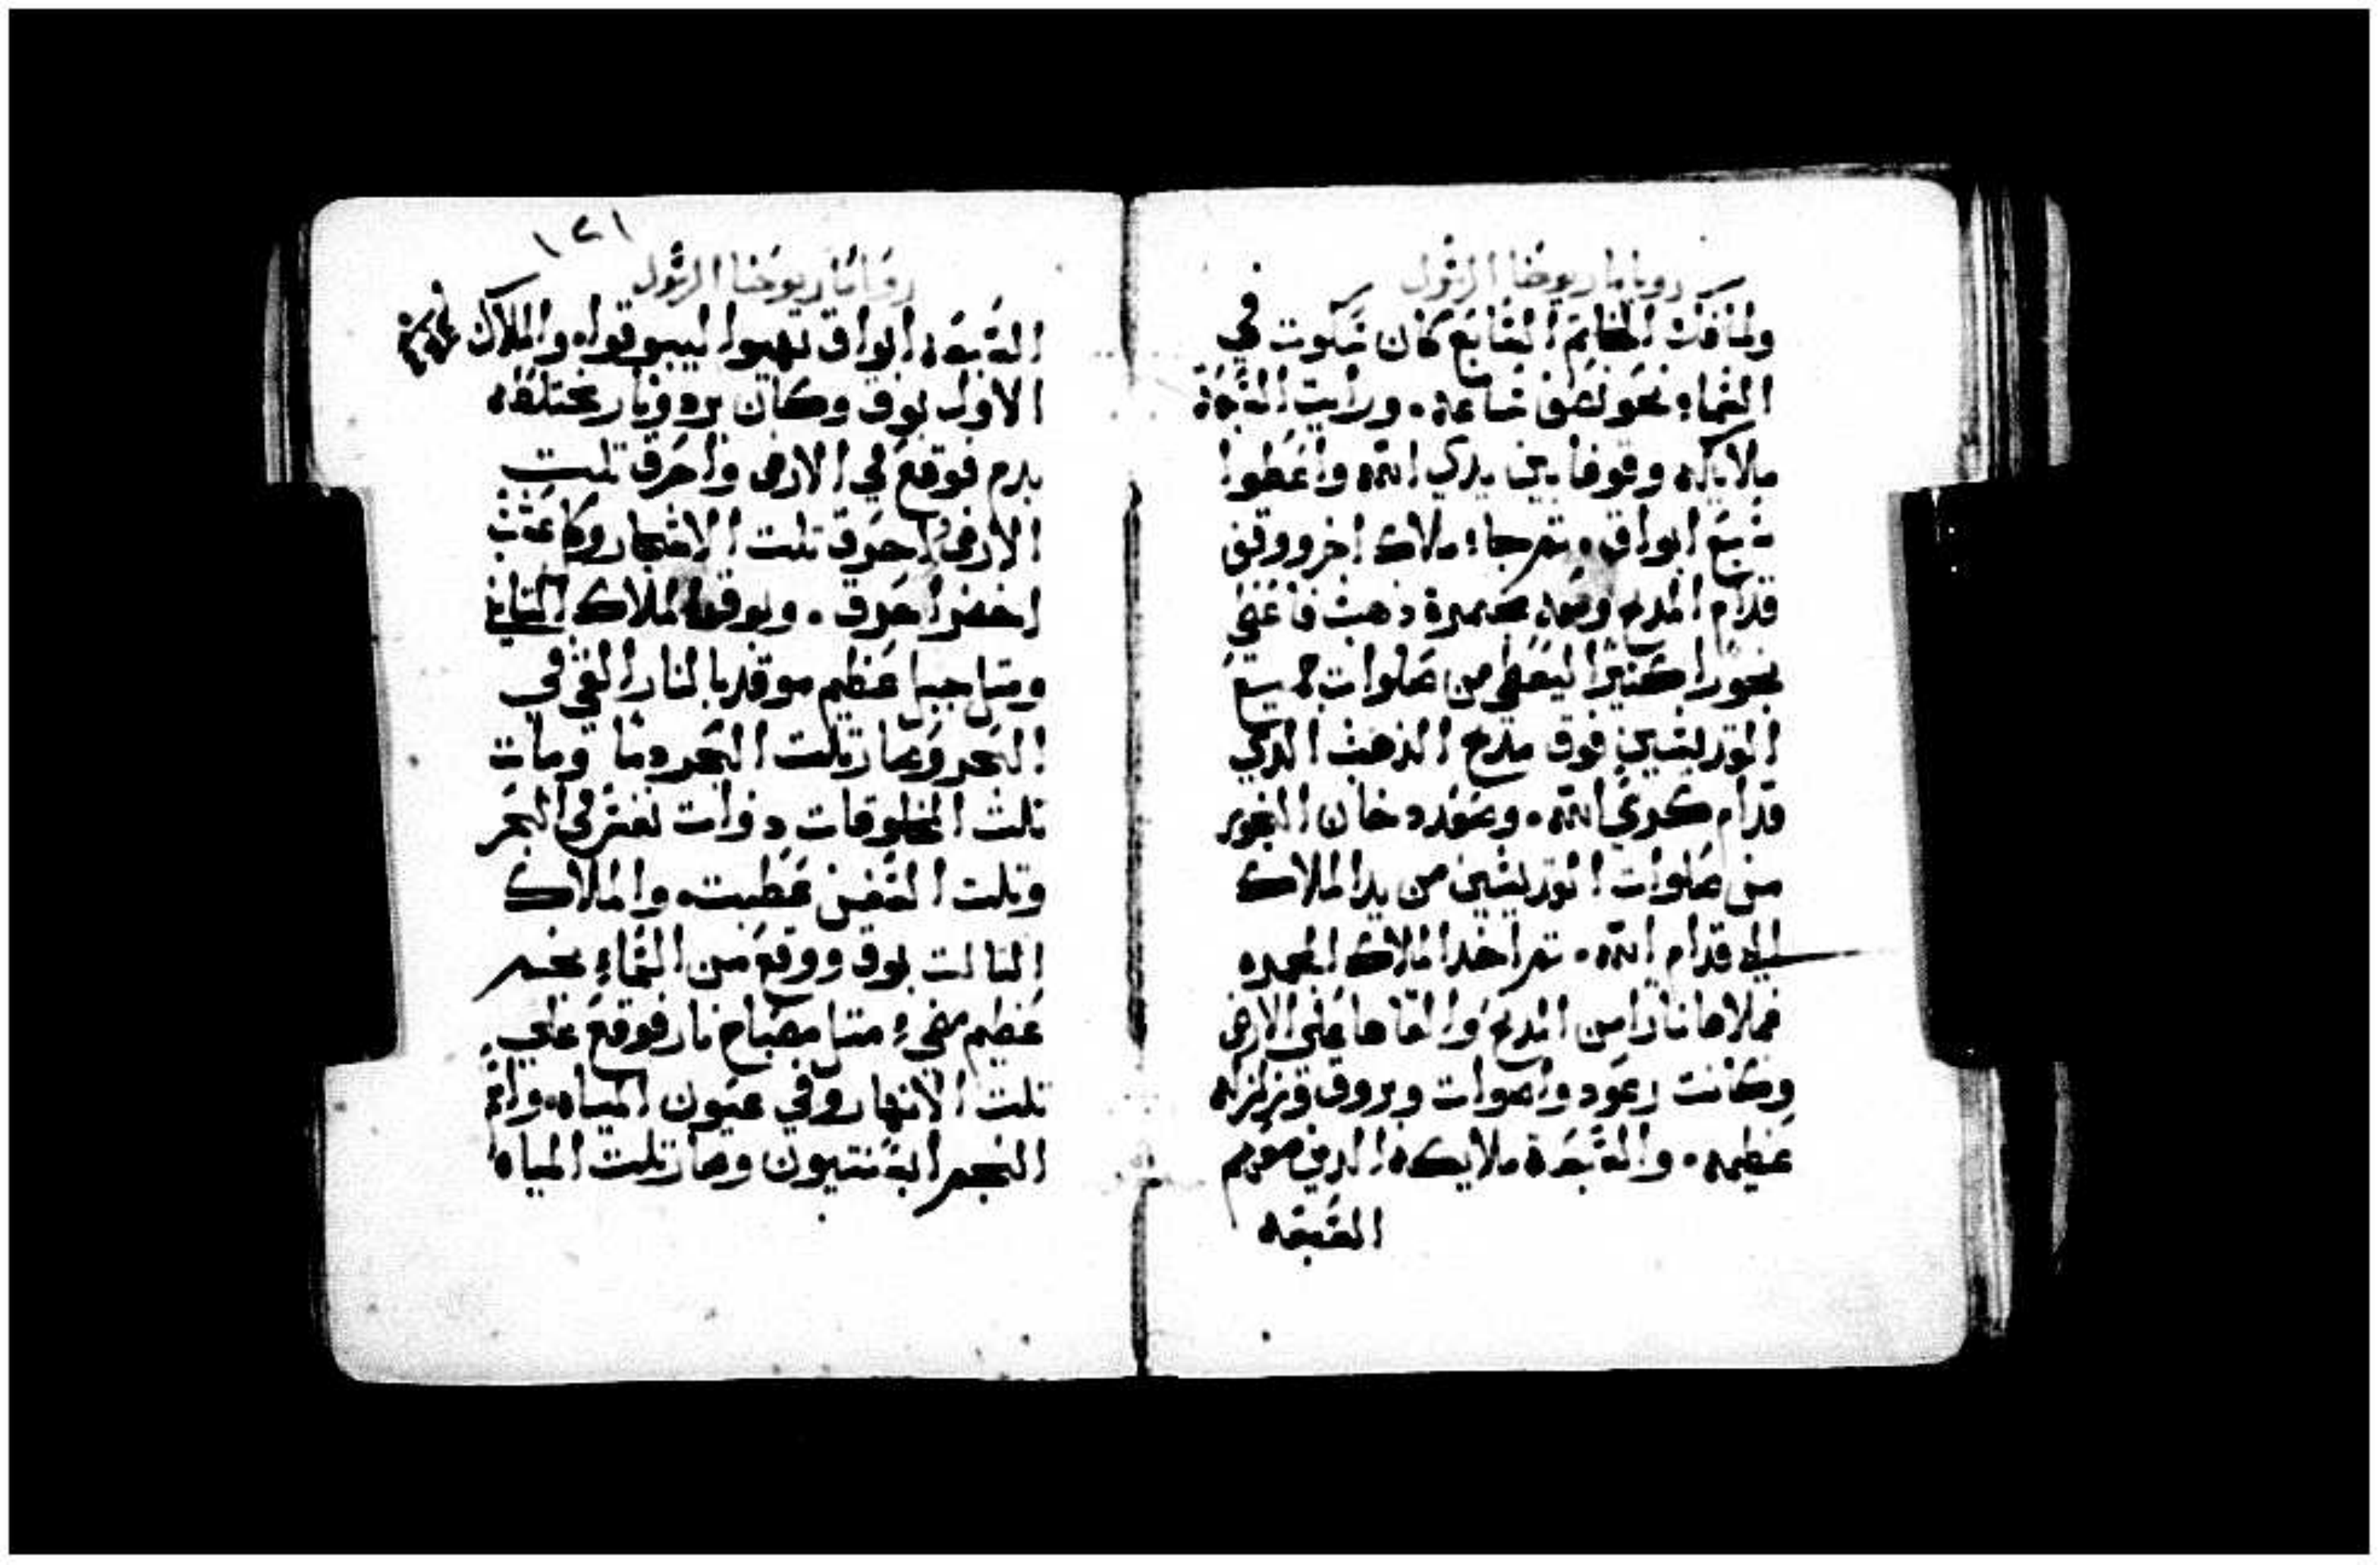 رويا مار يوحنا الرسول
ولما فك الخاتم السابع كان سكوت في
السماء نحو نصف ساعه. ورايت السبعة
ملايكه وقوفا بين يدي الله واعطوا
سبع ابواق. ثم جاء ملاك اخر ووقف
قدام المدبح ومعه مجمرة دهب فاعطي
بخورا كثيرا ليعطي من صلوات جميع
القديسين فوق مدبح الذهب الذي
قدام كرسي الله. وصعد دخان البخور
من صلوات القديسين من يد الملاك
الي قدام الله. ثم اخد الملاك المجمره
فملاها نارا من المدبح والقاها علي الارض
وكانت رعود واصوات وبروق وزلزله
عظيمه. والسبعة ملايكه الدين معهم
السبعه
١٢١
رويا مار يوحنا الرسول
السبعه ابواق تهيوا ليبوقوا. والملاك
الاول بوق وكان برد ونار مختلطه
بدم فوقع في الارض واحرق تلت
الارض واحرق تلت الاشجار وكل عشب
اخضر احرق. وبوق الملاك التاني
ومتل جبل عظيم موقد بالنار القي في
البحر وصار تلت البحر دما ومات
تلت المخلوقات دوات نفس في البحر
وتلت السفن عطبت. والملاك
التالت بوق ووقع من السماء نجم
عظيم مضيء متل مصباح نار فوقع علي
تلت الانهار وفي عيون المياه. واسم
النجم ابسنتيون وصار تلت المياه